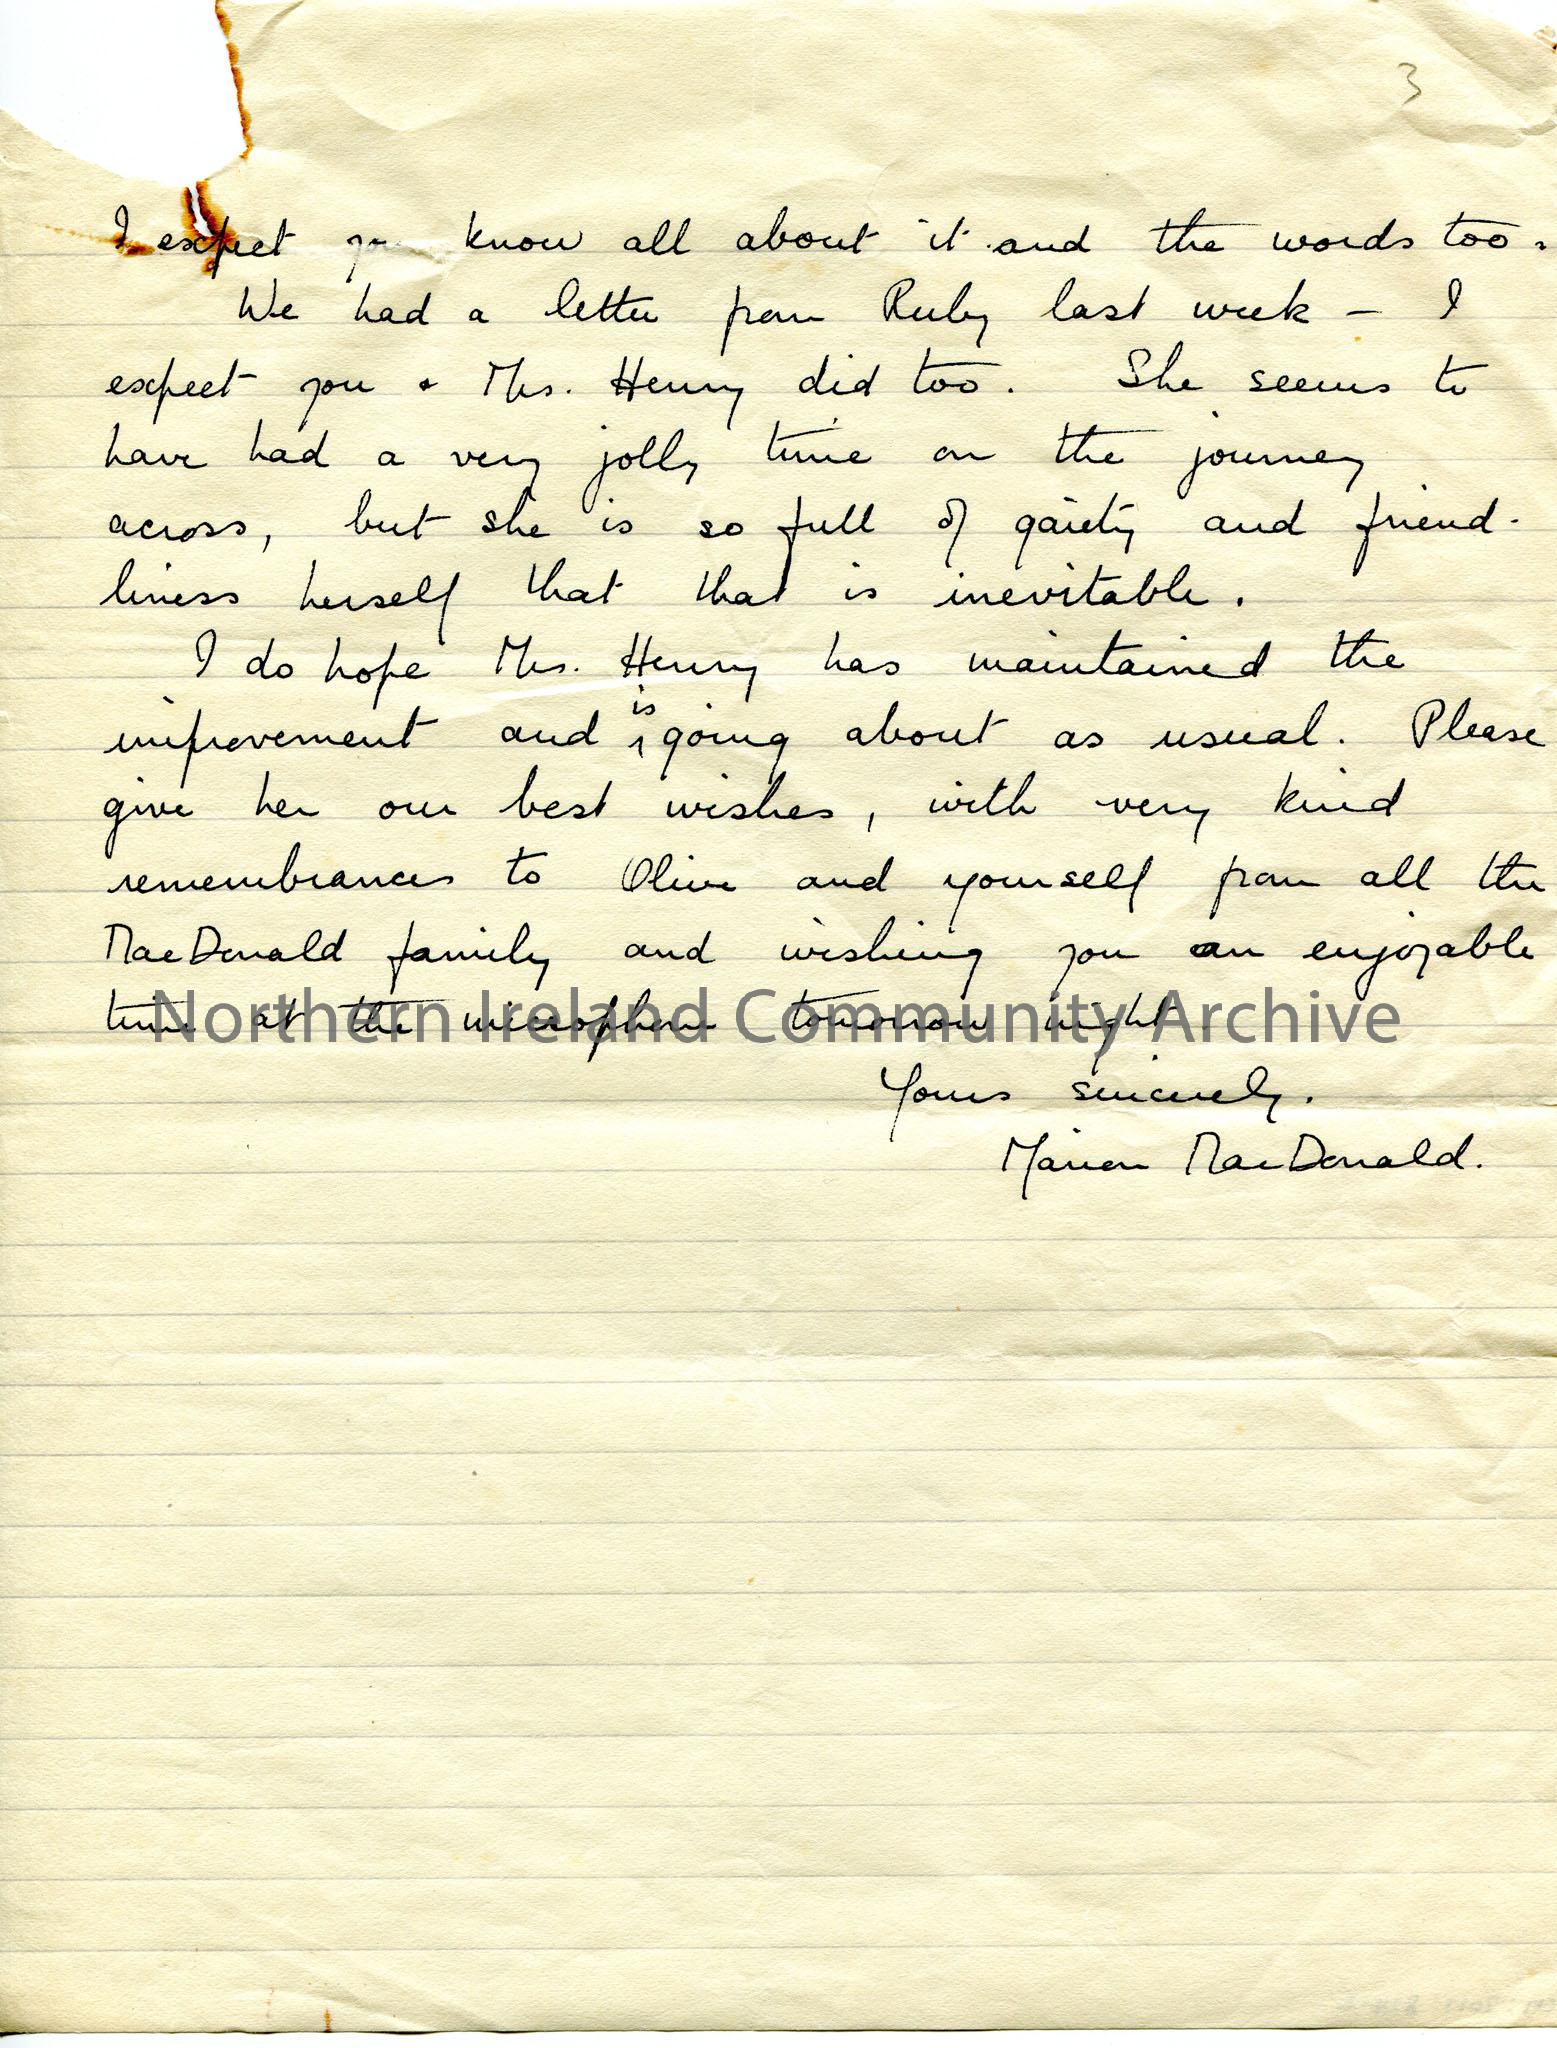 3
I expect you know all about it and the words too.
We had a letter from Ruby last week – I
expect you & Mrs. Henry did too. She seems to
have had a very jolly time on the journey
across, but she is so full of gaiety and friend-
liness herself that that is inevitable.
I do hope Mrs. Henry has maintained the
improvement and is going about as usual. Please
give her our best wishes, with very kind
remembrances to Olive and yourself from all the
MacDonald family and wishing you an enjoyable
time at the microphone tomorrow night.
Northern Ireland Community Archive
Yours sincerely.
Marion MacDonald.